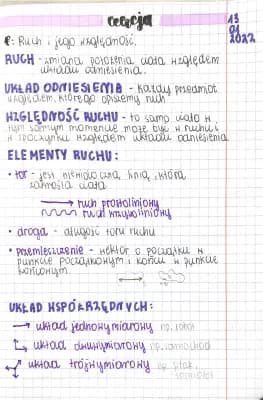 lekcja
13
01
2022
T: Ruch i jego względność.
RUCH - zmiana położenia ciała względem
układu odniesienia.
UKŁAD ODNIESIENIA - każdy przedmiot
względem, którego opiszemy ruch
WZGLĘDNOŚĆ RUCHU - to samo ciało w
tym samym momencie może być w ruchu i
w spoczynku względem układów odniesienia
ELEMENTY RUCHU:
• tor - jest niewidoczną linią, którą
zatacza ciało
→ ruch prostoliniowy
ruch krzywoliniowy
• droga - długość toru ruchu
• przemieszczenie - wektor o początku w
punkcie początkowym i końcu w punkcie
końcowym.
UKŁAD WSPÓŁRZĘDNYCH:
→ układ jednowymiarowy np. robot
układ dwuwymiarowy np. samochód
układ trójwymiarowy np. ptak,
samolot